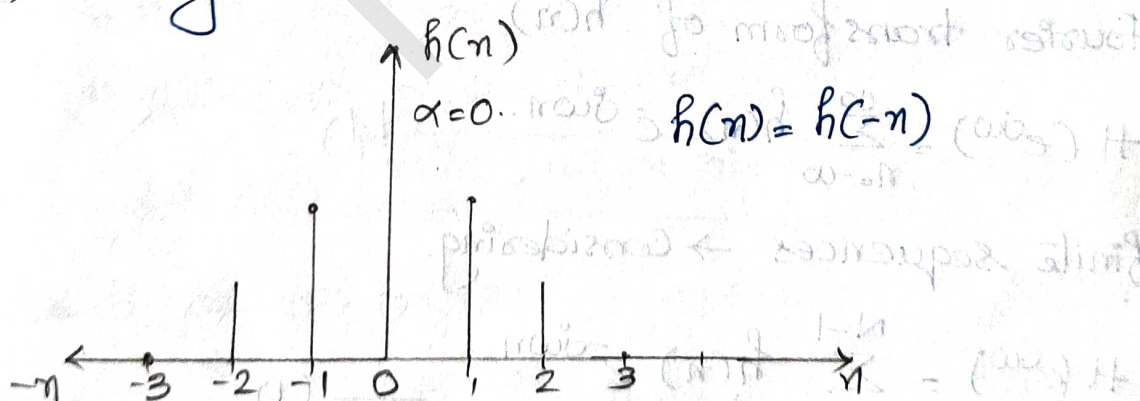 h(n)
α=0.
h(n) = h(-n)
-n -3 -2 -1 0 1 2 3 n